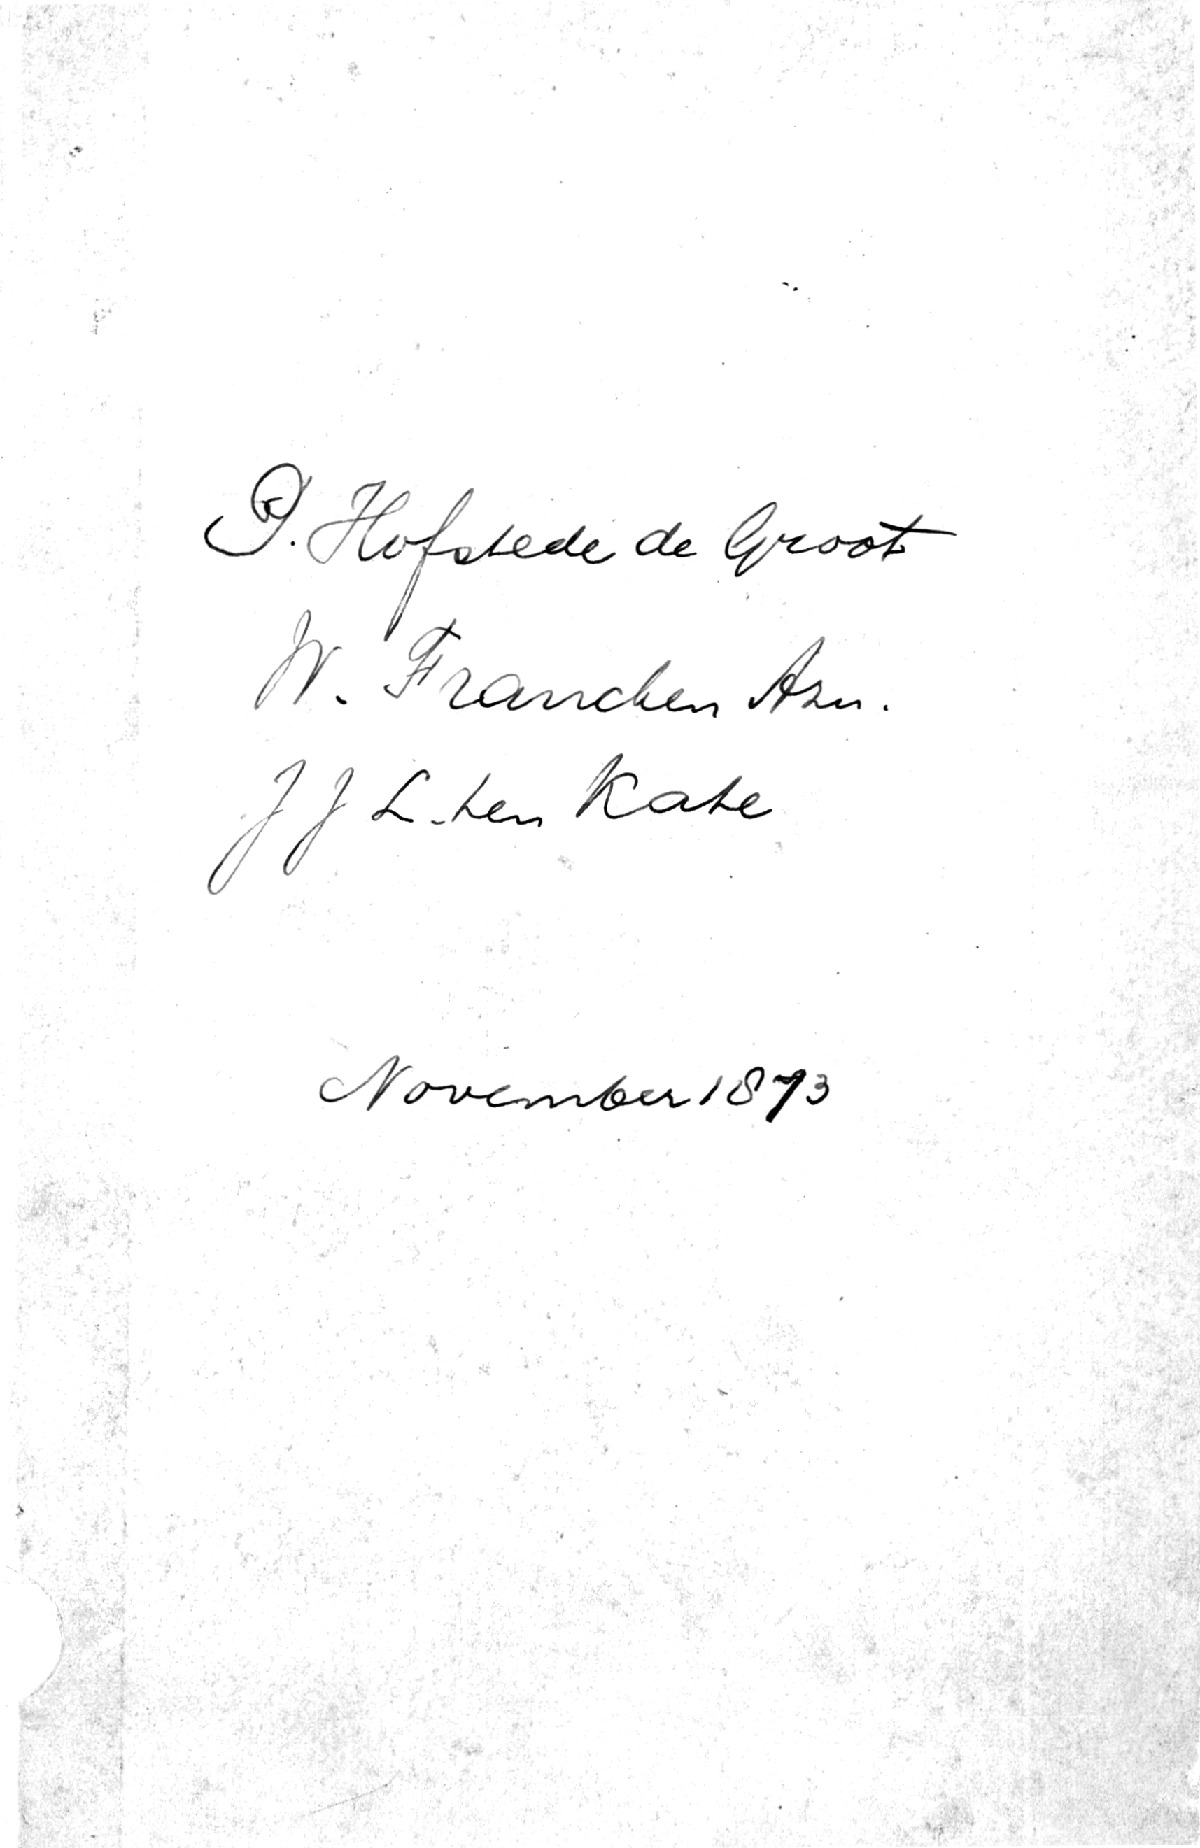 P. Hofstede de Groot
W. Francken Azn.
J J L. ten Kate
November 1873